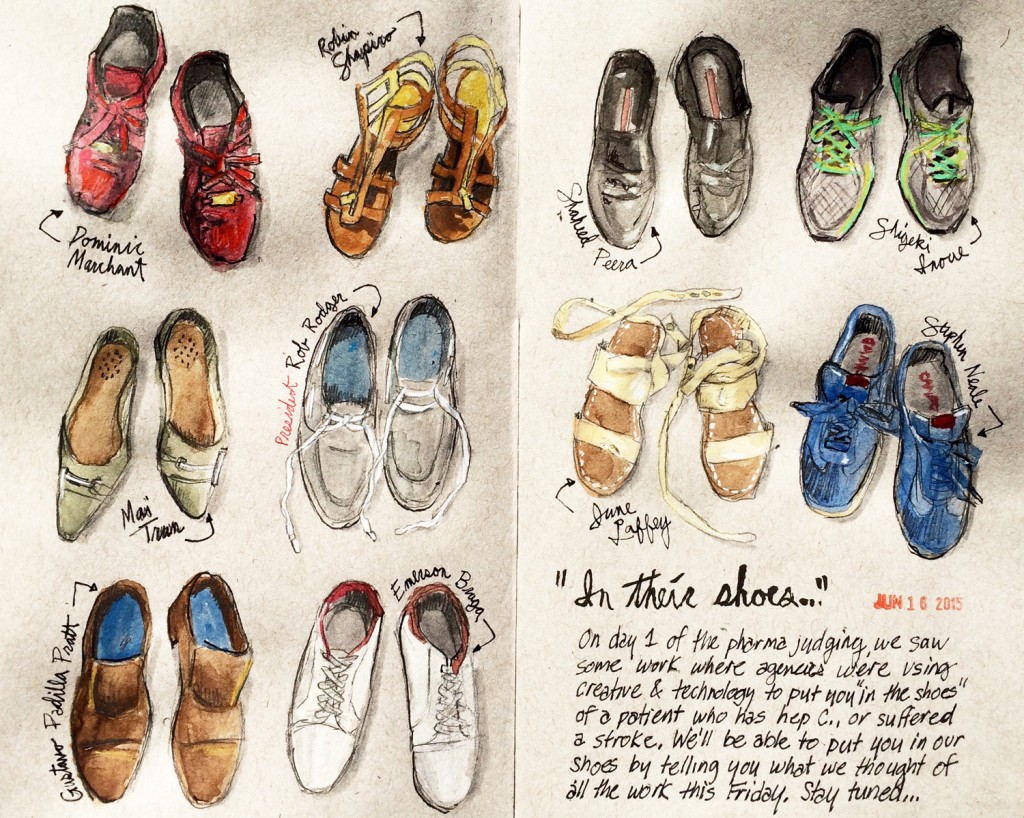 Dominic
Marchant
Robin
Shapiro
Mai
Tran
President Rob Rodger
Gustavo Padilla Pratt
Emerson Braga
Shaheed
Peera
Shigeki
Inoue
June
Laffey
Stephen Neale
"In their shoes..."
JUN 16 2015
On day 1 of the pharma judging, we saw
some work where agencies were using
creative & technology to put you "in the shoes"
of a patient who has hep C., or suffered
a stroke. We'll be able to put you in our
shoes by telling you what we thought of
all the work this Friday. Stay tuned...